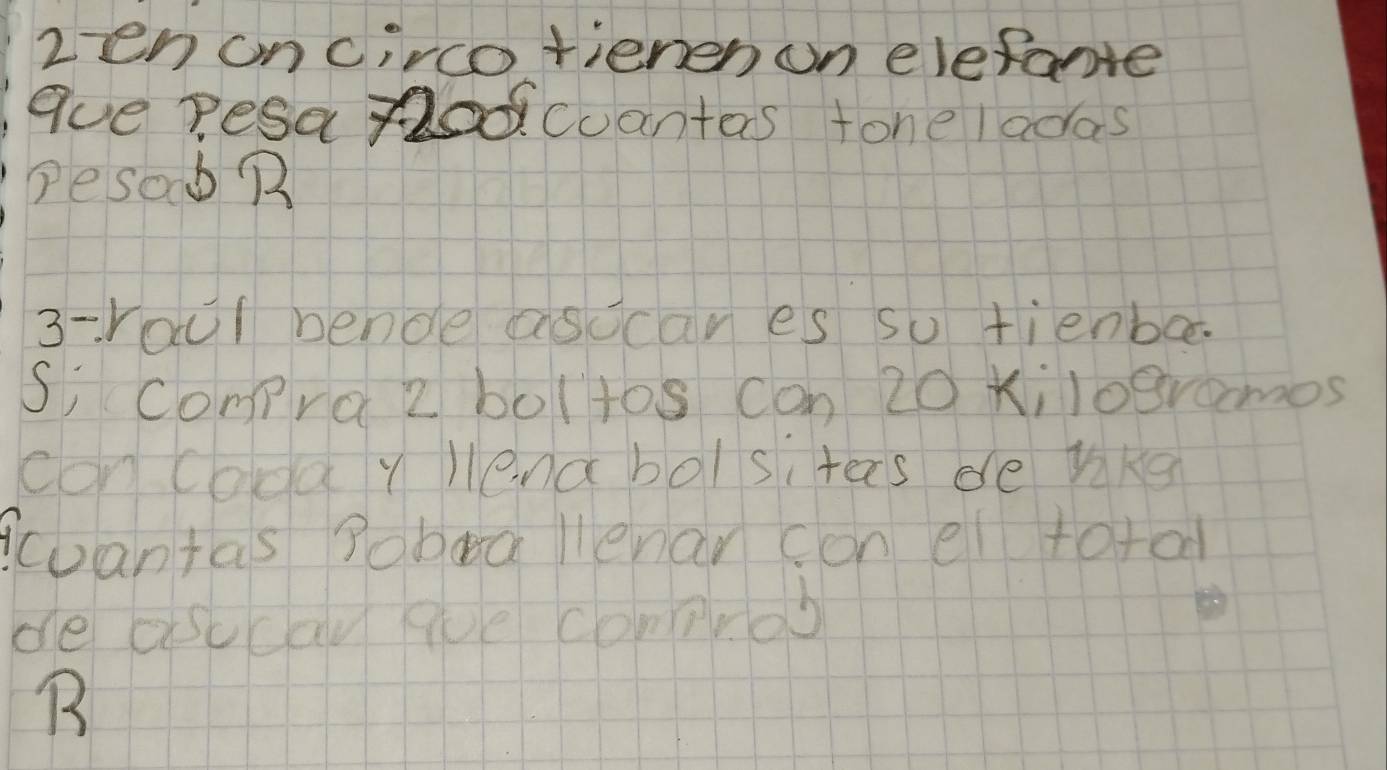 2-en on circo tienen on elefante
que pesa 7200 ¿cuantas toneladas
pesa? R
3-.raúl bende asúcar es su tienba.
Si compra 2 boltos con 20 Kilogramos
con cada y llena bolsitas de ½ kg
¿cuantas Pobra llenar con el total
de asucar que compro?
R